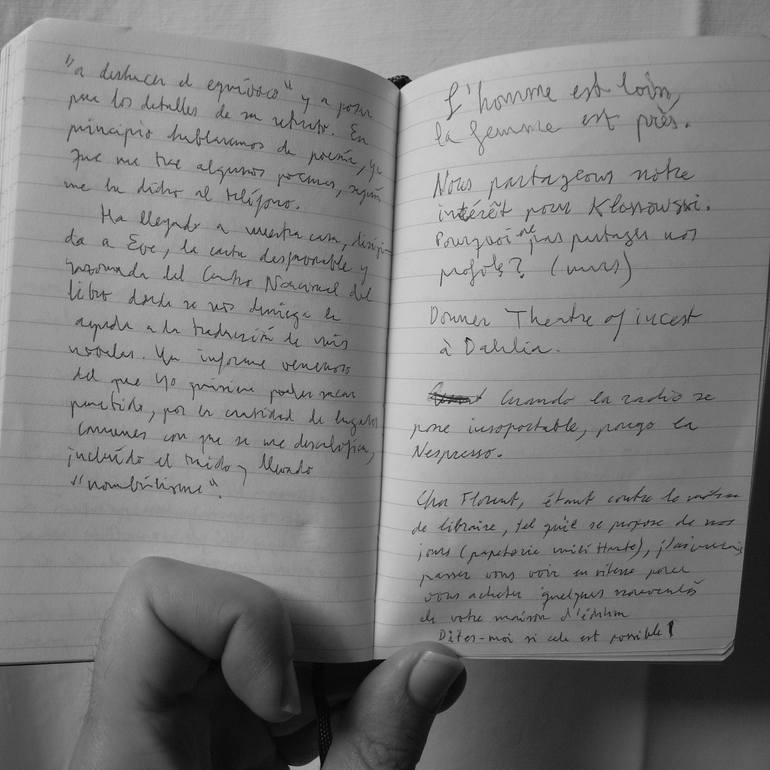 "a deshacer el equívoco" y a posar
para los detalles de su retrato. En
principio hablaremos de poesía, ya
que me trae algunos poemas, según
me ha dicho al teléfono.
Ha llegado a nuestra casa, dirigi-
da a Eve, la carta desfavorable y
razonada del Centro Nacional del
libro donde se nos deniega la
ayuda a la traducción de mis
novelas. Un informe venenoso
del que yo quisiera poder sacar
partido, por la cantidad de lugares
comunes con que se me descalifica,
incluído el traído y llevado
"nombrilisme".
L'homme est loin,
la femme est près.
Nous partageons notre
intérêt pour Klossowski.
Pourquoi ne pas partager nos
profils? (murs)
Donner Theatre of incest
à Dahlia.
Cuando la radio se
pone insoportable, pongo la
Nespresso.
Cher Florent, étant contre le métier
de libraire, tel qu'il se propose de nos
jours (papeterie), j'aimerais
passer vous voir en vitesse pour
vous acheter quelques nouveautés
de votre maison d'édition
Dites-moi si cela est possible!